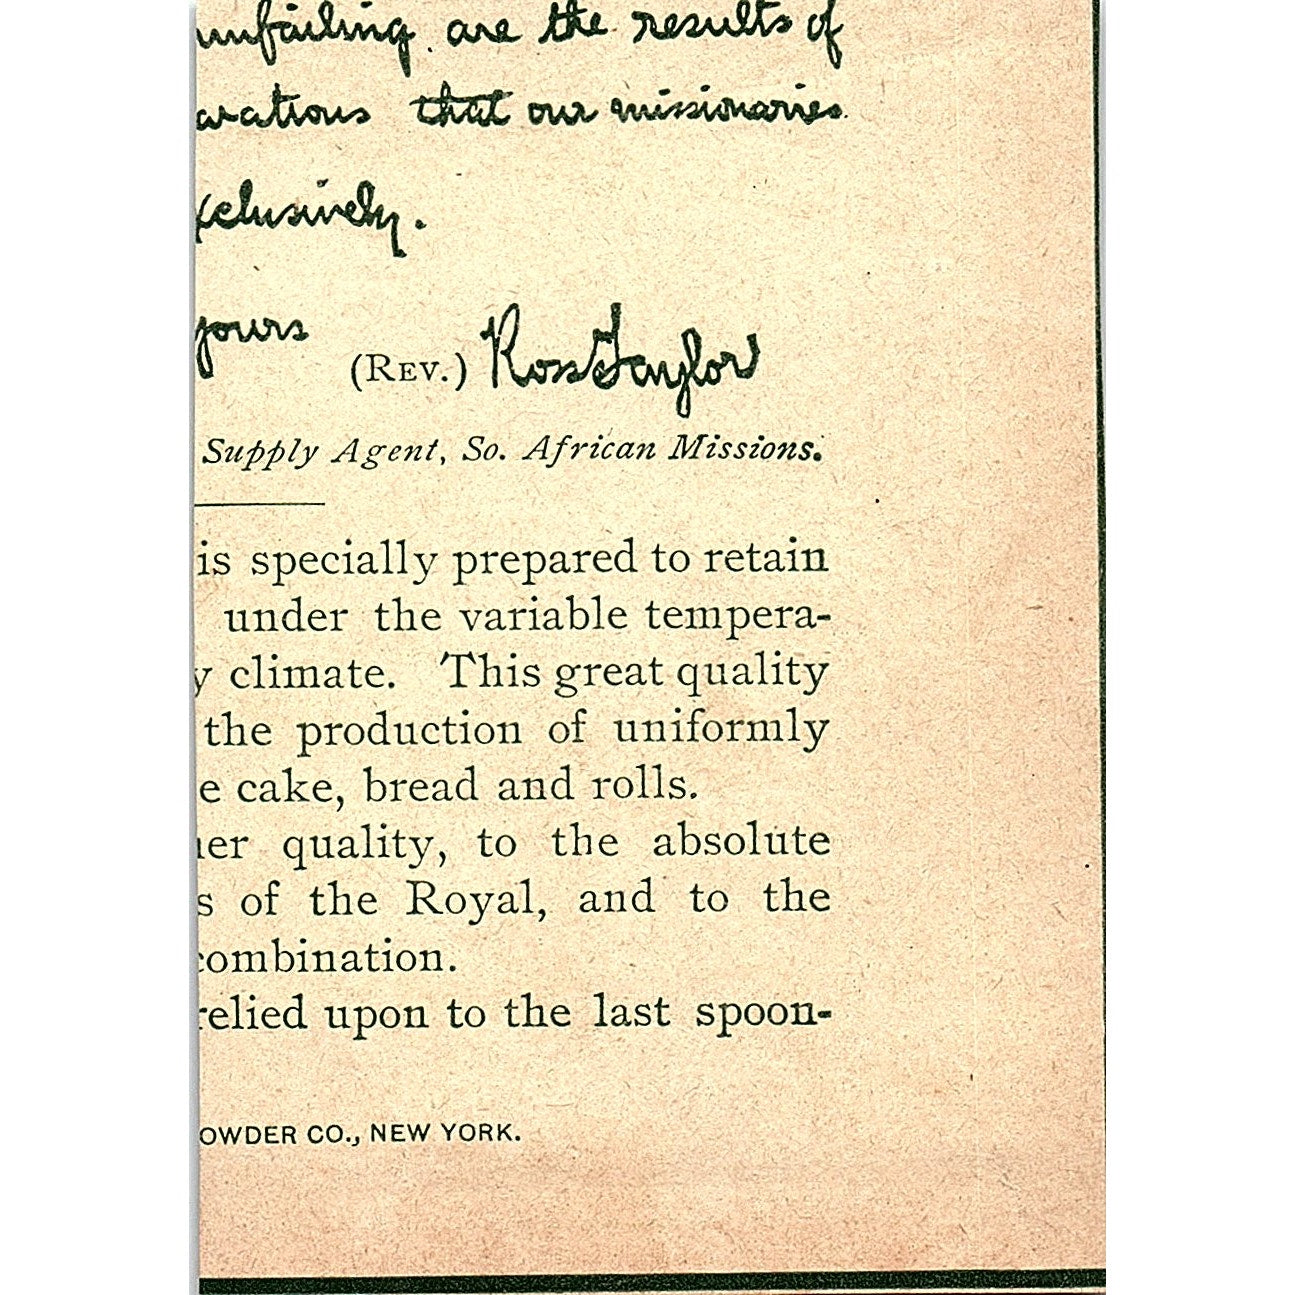 unfailing are the results of
arations that our missionaries
xclusively.
yours
(REV.) Ross Taylor
Supply Agent, So. African Missions.
is specially prepared to retain
under the variable tempera-
y climate. This great quality
the production of uniformly
e cake, bread and rolls.
er quality, to the absolute
s of the Royal, and to the
combination.
relied upon to the last spoon-
OWDER CO., NEW YORK.